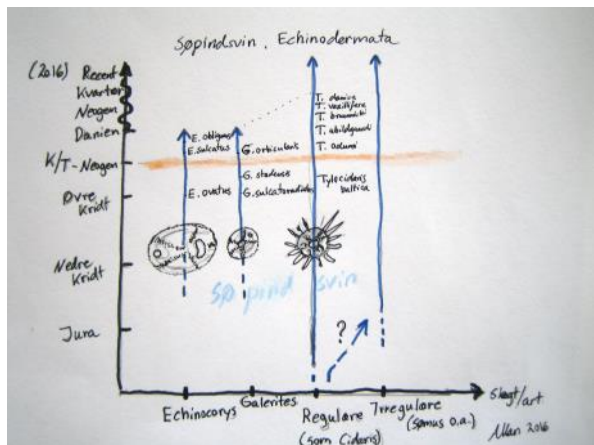 Søpindsvin, Echinodermata
(2016) Recent
Kvartær
Neogen
Danien
K/T-Neogen
Øvre
Kridt
Nedre
Kridt
Jura
E. obliqua
E. sulcatus
E. ovatus
G. orbicularis
G. stadensis
G. sulcatoradiatus
T. danica
T. vexillifera
T. abildgaardi
T. oedumi
Tylocidaris
baltica
Sø pind svin
?
Echinocorys
Galerites
Regulære
(som Cidaris)
Irregulære
(spatus o.a.)
Slægt/art
Allan 2016